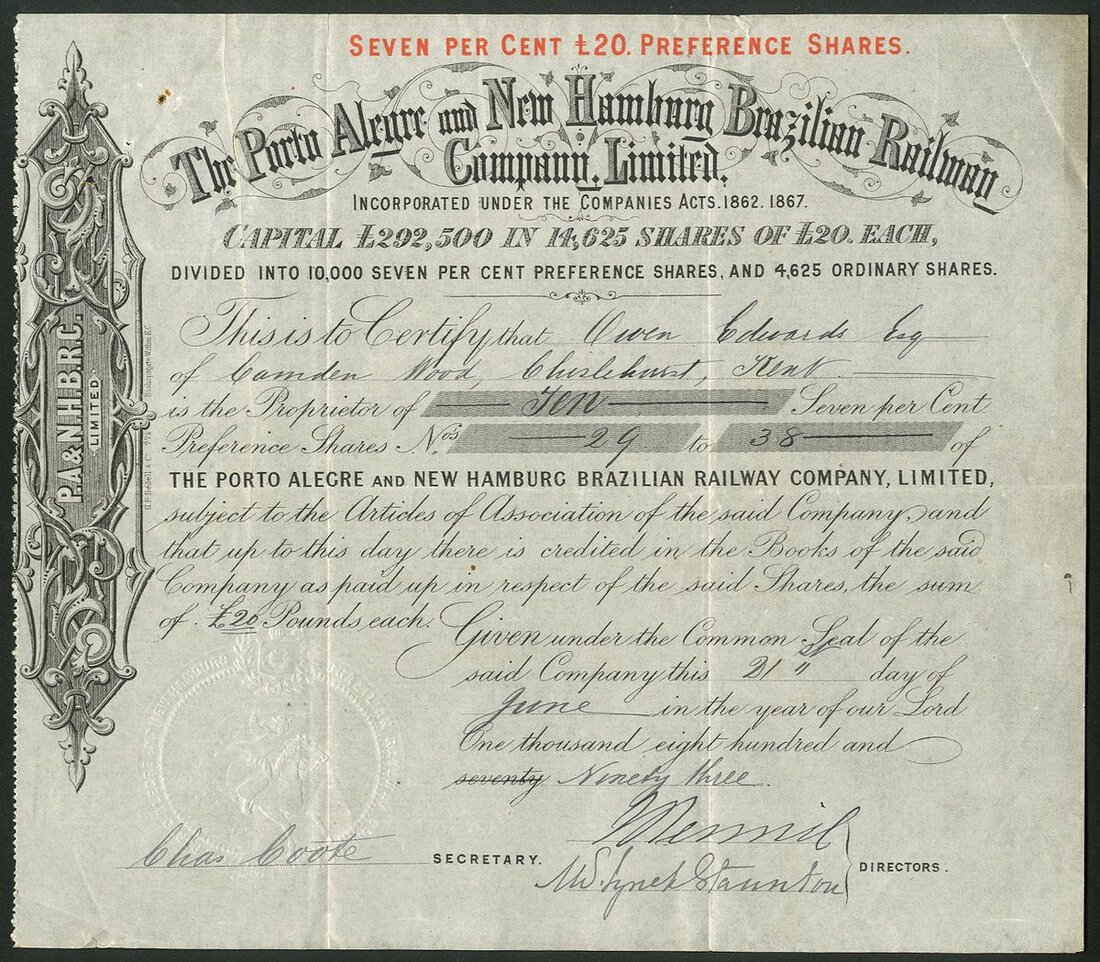 SEVEN PER CENT £20. PREFERENCE SHARES.
The Porto Alegre and New Hamburg Brazilian Railway
Company, Limited.
INCORPORATED UNDER THE COMPANIES ACTS. 1862. 1867.
CAPITAL £292,500 IN 14,625 SHARES OF £20. EACH,
DIVIDED INTO 10,000 SEVEN PER CENT PREFERENCE SHARES, AND 4,625 ORDINARY SHARES.
This is to Certify that Owen Edwards Esq
of Camden Wood, Chislehurst, Kent
is the Proprietor of Ten Seven per Cent
Preference Shares Nos. 29 to 38 of
THE PORTO ALEGRE AND NEW HAMBURG BRAZILIAN RAILWAY COMPANY, LIMITED,
subject to the Articles of Association of the said Company, and
that up to this day there is credited in the Books of the said
Company as paid up in respect of the said Shares, the sum
of £20 Pounds each.
Given under the Common Seal of the
said Company this 21 " day of
June in the year of our Lord
One thousand eight hundred and
seventy Ninety three
Chas Coote SECRETARY.
M S. Lynch Staunton
DIRECTORS.
P.A. & N.H.B.R.C.
LIMITED